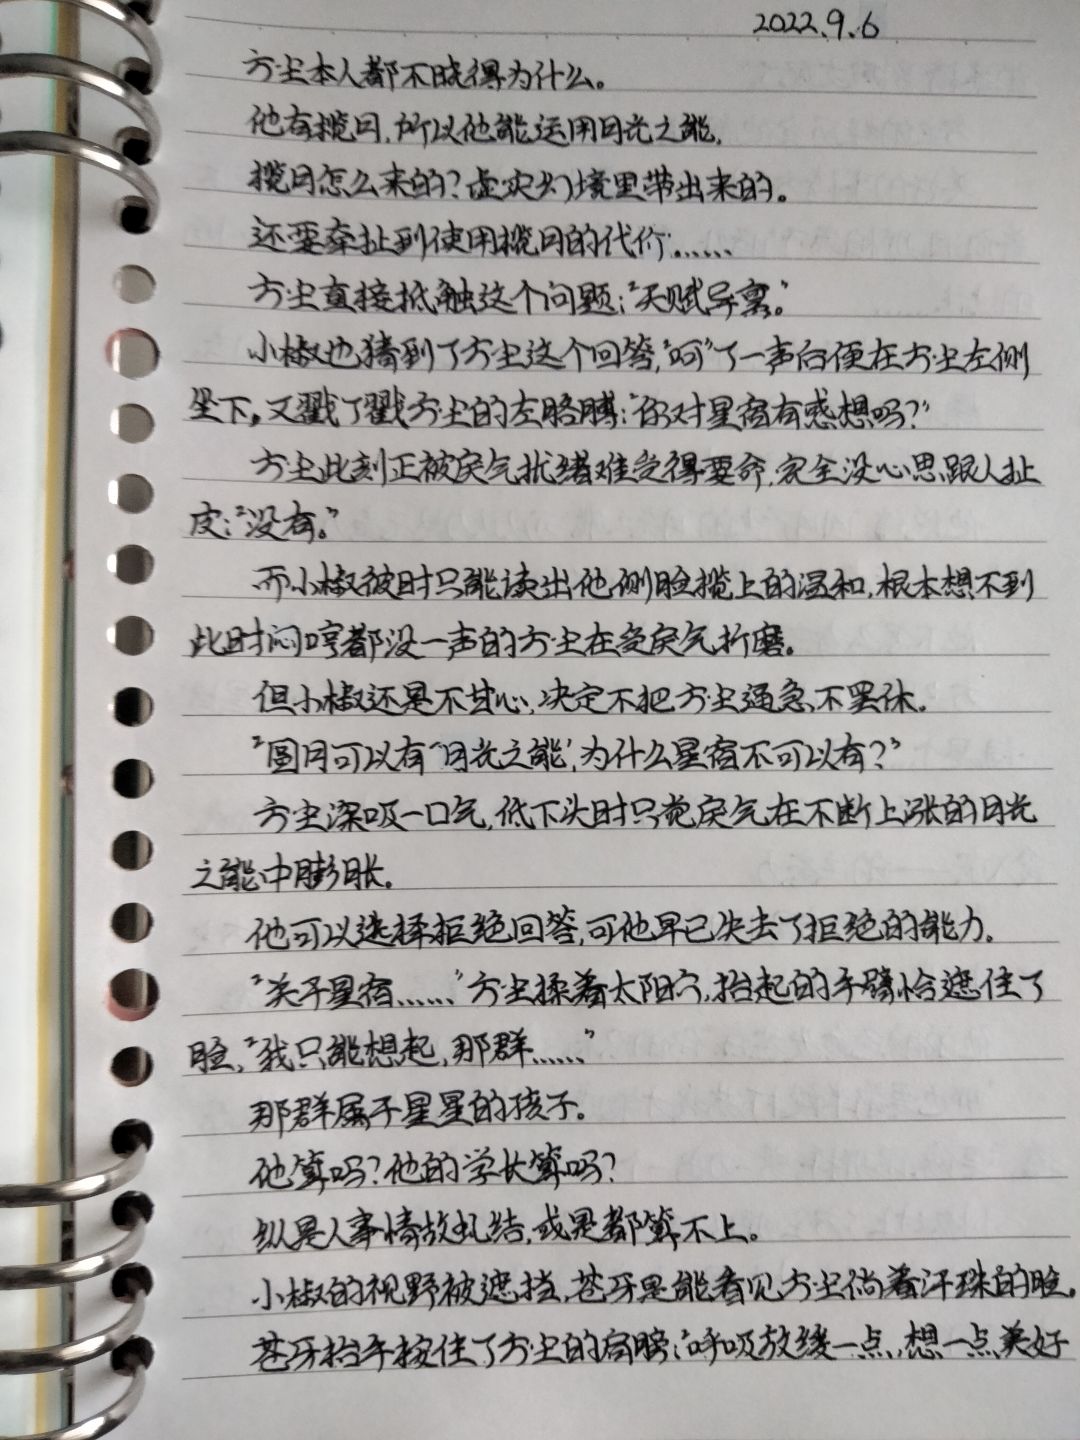 2022.9.6
方尘本人都不晓得为什么。
他有揽月,所以他能运用月光之能,
揽月怎么来的?虚灾幻境里带出来的。
还要牵扯到使用揽月的代价……
方尘直接抵触这个问题:“天赋异禀。”
小椒也猜到了方尘这个回答,“呵”了一声后便在方尘左侧
坐下。又戳了戳方尘的左胳膊:“你对星宿有感想吗?”
方尘此刻正被戾气扰绪难受得要命,完全没心思跟人扯
皮:“没有。”
而小椒彼时只能读出他侧脸揽上的温和,根本想不到
此时闷哼都没一声的方尘在受戾气折磨。
但小椒还是不甘心,决定不把方尘逼急不罢休。
“圆月可以有‘月光之能’,为什么星宿不可以有?”
方尘深吸一口气,低下头时只觉戾气在不断上涨的月光
之能中膨胀。
他可以选择拒绝回答,可他早已失去了拒绝的能力。
“关于星宿……”方尘揉着太阳穴,抬起的手臂恰遮住了
脸,“我只能想起,那群……”
那群属于星星的孩子。
他算吗?他的学长算吗?
纵是人事情故虬结,或是都算不上。
小椒的视野被遮挡,苍牙思能看见方尘淌着汗珠的脸。
苍牙抬手按住了方尘的肩膀:“呼吸放缓一点,想一点美好